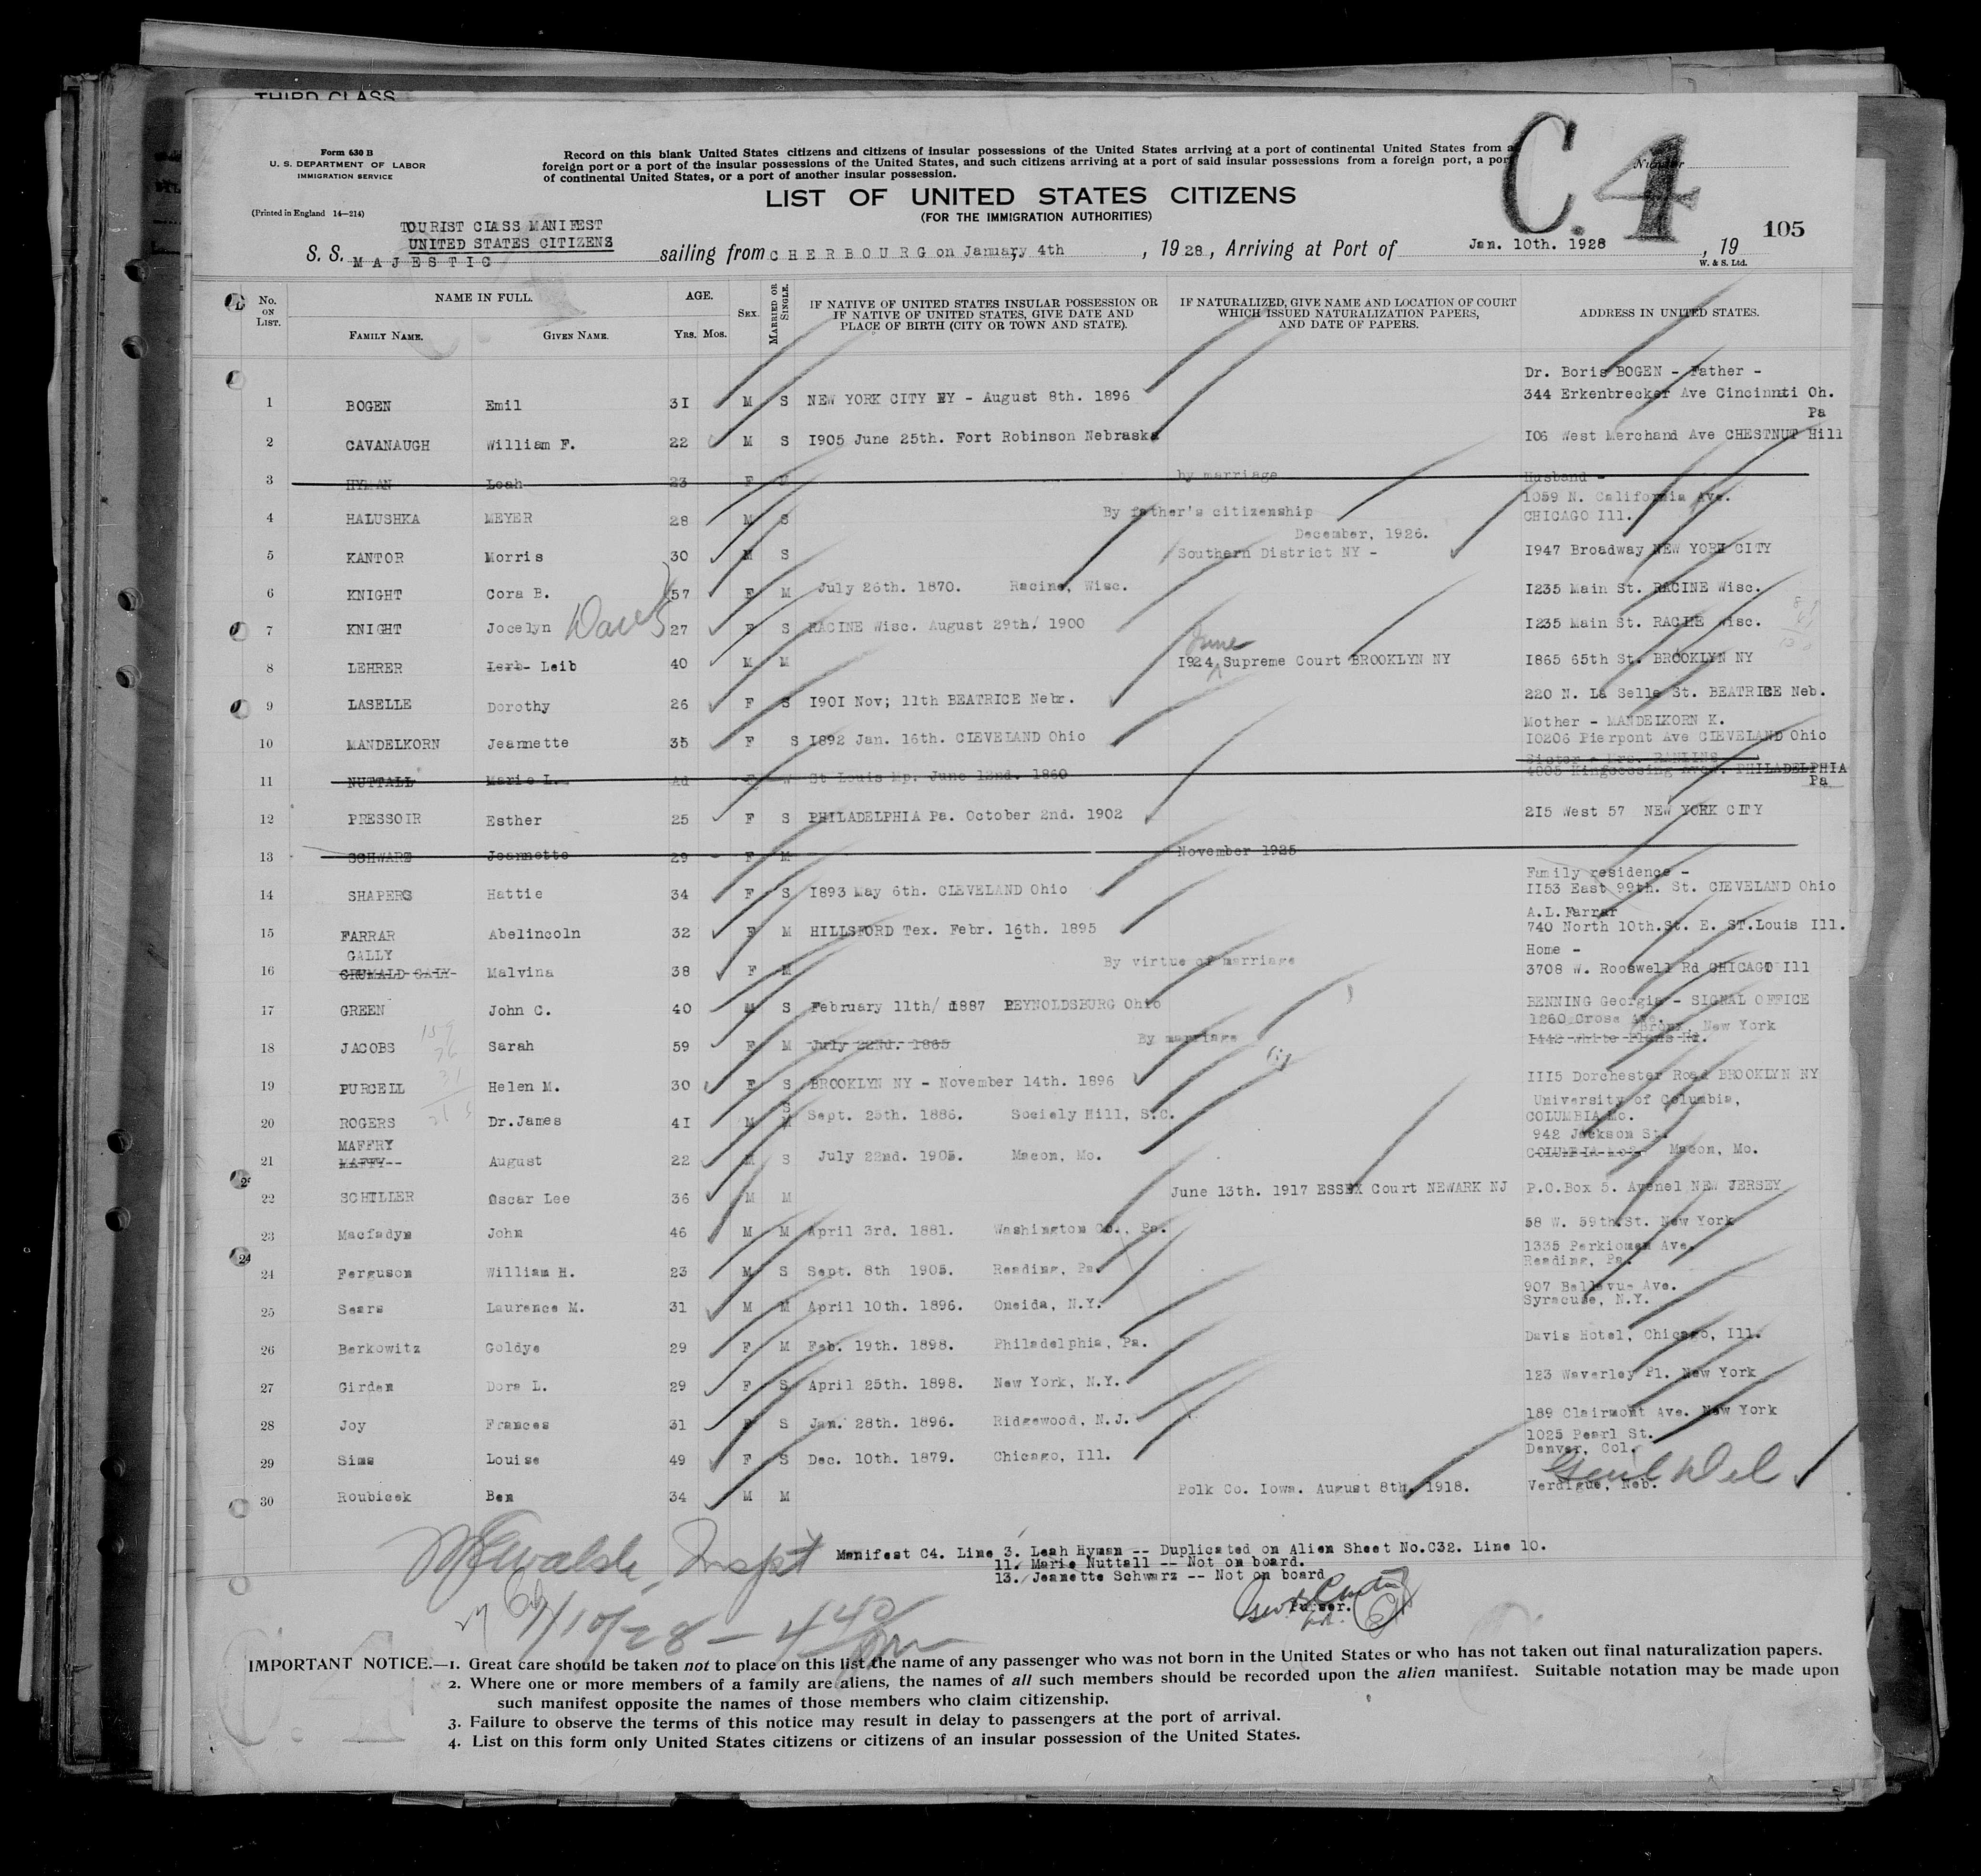 THIRD CLASS
Form 630 B
U. S. DEPARTMENT OF LABOR
IMMIGRATION SERVICE
(Printed in England 14—214)
Record on this blank United States citizens and citizens of insular possessions of the United States arriving at a port of continental United States from a
foreign port or a port of the insular possessions of the United States, and such citizens arriving at a port of said insular possessions from a foreign port, a port
of continental United States, or a port of another insular possession.
C. 4
Number
LIST OF UNITED STATES CITIZENS
(FOR THE IMMIGRATION AUTHORITIES)
105
TOURIST CLASS MANIFEST
UNITED STATES CITIZENS
S. S. MAJESTIC sailing from CHERBOURG on January 4th, 1928, Arriving at Port of Jan. 10th. 1928, 19
W. & S. Ltd.
No. ON LIST. NAME IN FULL. FAMILY NAME. GIVEN NAME. AGE. Yrs. Mos. SEX. MARRIED OR SINGLE. IF NATIVE OF UNITED STATES INSULAR POSSESSION OR IF NATIVE OF UNITED STATES, GIVE DATE AND PLACE OF BIRTH (CITY OR TOWN AND STATE). IF NATURALIZED, GIVE NAME AND LOCATION OF COURT WHICH ISSUED NATURALIZATION PAPERS, AND DATE OF PAPERS. ADDRESS IN UNITED STATES.
Dr. Boris BOGEN - Father -
1 BOGEN Emil 3I M S NEW YORK CITY NY - August 8th. 1896 344 Erkenbrecker Ave Cincinnti Oh.
Pa
2 CAVANAUGH William F. 22 M S I905 June 25th. Fort Robinson Nebraska I06 West Merchand Ave CHESTNUT Hill
3 HYMAN Leah 23 F M by marriage Husband -
1059 N. California Ave.
4 HALUSHKA MEYER 28 M S By father's citizenship CHICAGO Ill.
December, 1926.
5 KANTOR Morris 30 M S Southern District NY - I947 Broadway NEW YORK CITY
6 KNIGHT Cora B. 57 F M July 26th. 1870. Racine, Wisc. I235 Main St. RACINE Wisc.
7 KNIGHT Jocelyn 27 F S RACINE Wisc. August 29th/ 1900 I235 Main St. RACINE Wisc.
June
8 LEHRER Lerb- Leib 40 M M I924 Supreme Court BROOKLYN NY I865 65th St. BROOKLYN NY
9 LASELLE Dorothy 26 F S I90I Nov; 11th BEATRICE Nebr. 220 N. La Selle St. BEATRICE Neb.
Mother - MANDELKORN K.
10 MANDELKORN Jeannette 35 F S I892 Jan. 16th. CLEVELAND Ohio I0206 Pierpont Ave CLEVELAND Ohio
Sister - Mrs. RAWLINS
11 NUTTALL Marie L. Ad F W St Louis Mp. June 12nd. 1860 4805 Kingsessing Ave. PHILADELPHIA
Pa
12 PRESSOIR Esther 25 F S PHILADELPHIA Pa. October 2nd. 1902 2I5 West 57 NEW YORK CITY
13 SCHWARZ Jeannette 29 - F M November 1925
Family residence -
14 SHAPERO Hattie 34 F S I893 May 6th. CLEVELAND Ohio II53 East 99th. St. CLEVELAND Ohio
A.L.Farrar
15 FARRAR Abelincoln 32 F M HILLSFORD Tex. Febr. 16th. 1895 740 North 10th.St. E. ST.Louis Ill.
GALLY Home -
16 GRUMALD GALY- Malvina 38 F M By virtue of marriage 3708 W. Rooswell Rd CHICAGO Ill
17 GREEN John C. 40 M S February 11th/ 1887 REYNOLDSBURG Ohio BENNING Georgia - SIGNAL OFFICE
1260 Grosa Ave.
Bronx, New York
18 JACOBS Sarah 59 F M July 22nd. 1865 By marriage I442 White Plans Rd.
19 PURCELL Helen M. 30 F S BROOKLYN NY - November 14th. 1896 III5 Dorchester Road BROOKLYN NY
S University of Columbia,
20 ROGERS Dr.James 4I M M Sept. 25th. 1886. Sociely Hill, S.C. COLUMBIA Mo.
MAFFRY 942 Jackson St.
21 MAFFY-- August 22 M S July 22nd. 1905. Macon, Mo. COLUMBIA Mo. Macon, Mo.
22 SCHILLER Oscar Lee 36 M M June 13th. 1917 ESSEX Court NEWARK NJ P.O.Box 5. Avenel NEW JERSEY
23 Macfadyn John 46 M M April 3rd. 1881. Washington Co., Pa. 58 W. 59th.St. New York
1335 Perkiomen Ave,
24 Ferguson William H. 23 M S Sept. 8th 1905. Reading, Pa. Reading, Pa.
907 Bellevue Ave.
25 Sears Laurence M. 31 M M April 10th. 1896. Oneida, N.Y. Syracuse, N.Y.
26 Berkowitz Goldye 29 F M Feb. 19th. 1898. Philadelphia, Pa. Davis Hotel, Chicago, Ill.
27 Girden Dora L. 29 F S April 25th. 1898. New York, N.Y. 123 Waverley Pl. New York
28 Joy Frances 31 F S Jan. 28th. 1896. Ridgewood, N.J. 189 Clairmont Ave. New York
1025 Pearl St.
29 Sims Louise 49 F S Dec. 10th. 1879. Chicago, Ill. Denver, Col.
30 Roubicek Ben 34 M M Polk Co. Iowa. August 8th. 1918. Verdigue, Neb.
Walsh, Inspt
Manifest C4. Line 3. Leah Hyman -- Duplicated on Alien Sheet No.C32. Line 10.
11. Marie Nuttall -- Not on board.
13. Jeanette Schwarz -- Not on board
Purser.
1/10/28 - 4 40 pm
IMPORTANT NOTICE.—1. Great care should be taken not to place on this list the name of any passenger who was not born in the United States or who has not taken out final naturalization papers.
2. Where one or more members of a family are aliens, the names of all such members should be recorded upon the alien manifest. Suitable notation may be made upon
such manifest opposite the names of those members who claim citizenship.
3. Failure to observe the terms of this notice may result in delay to passengers at the port of arrival.
4. List on this form only United States citizens or citizens of an insular possession of the United States.